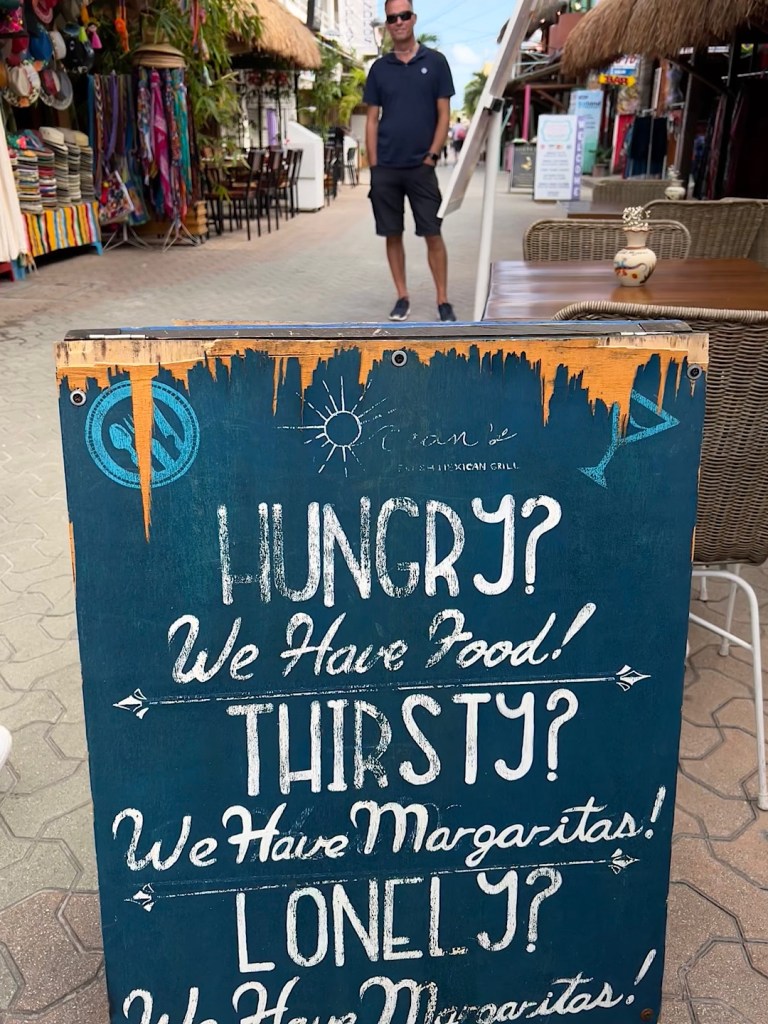 MEXICAN GRILL
HUNGRY?
We Have Food!
THIRSTY?
We Have Margaritas!
LONELY?
We Have Margaritas!